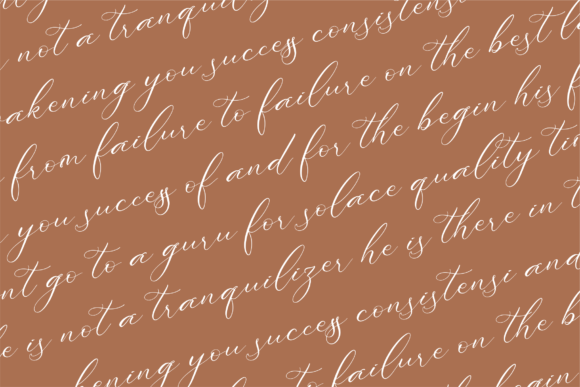 not a tranquil
akening you success consistensi
from failure to failure on the best l
you success of and for the begin his f
nt go to a guru for solace quality ti
e is not a tranquilizer he is there in t
kening you success consistensi and
to failure on the b
begin